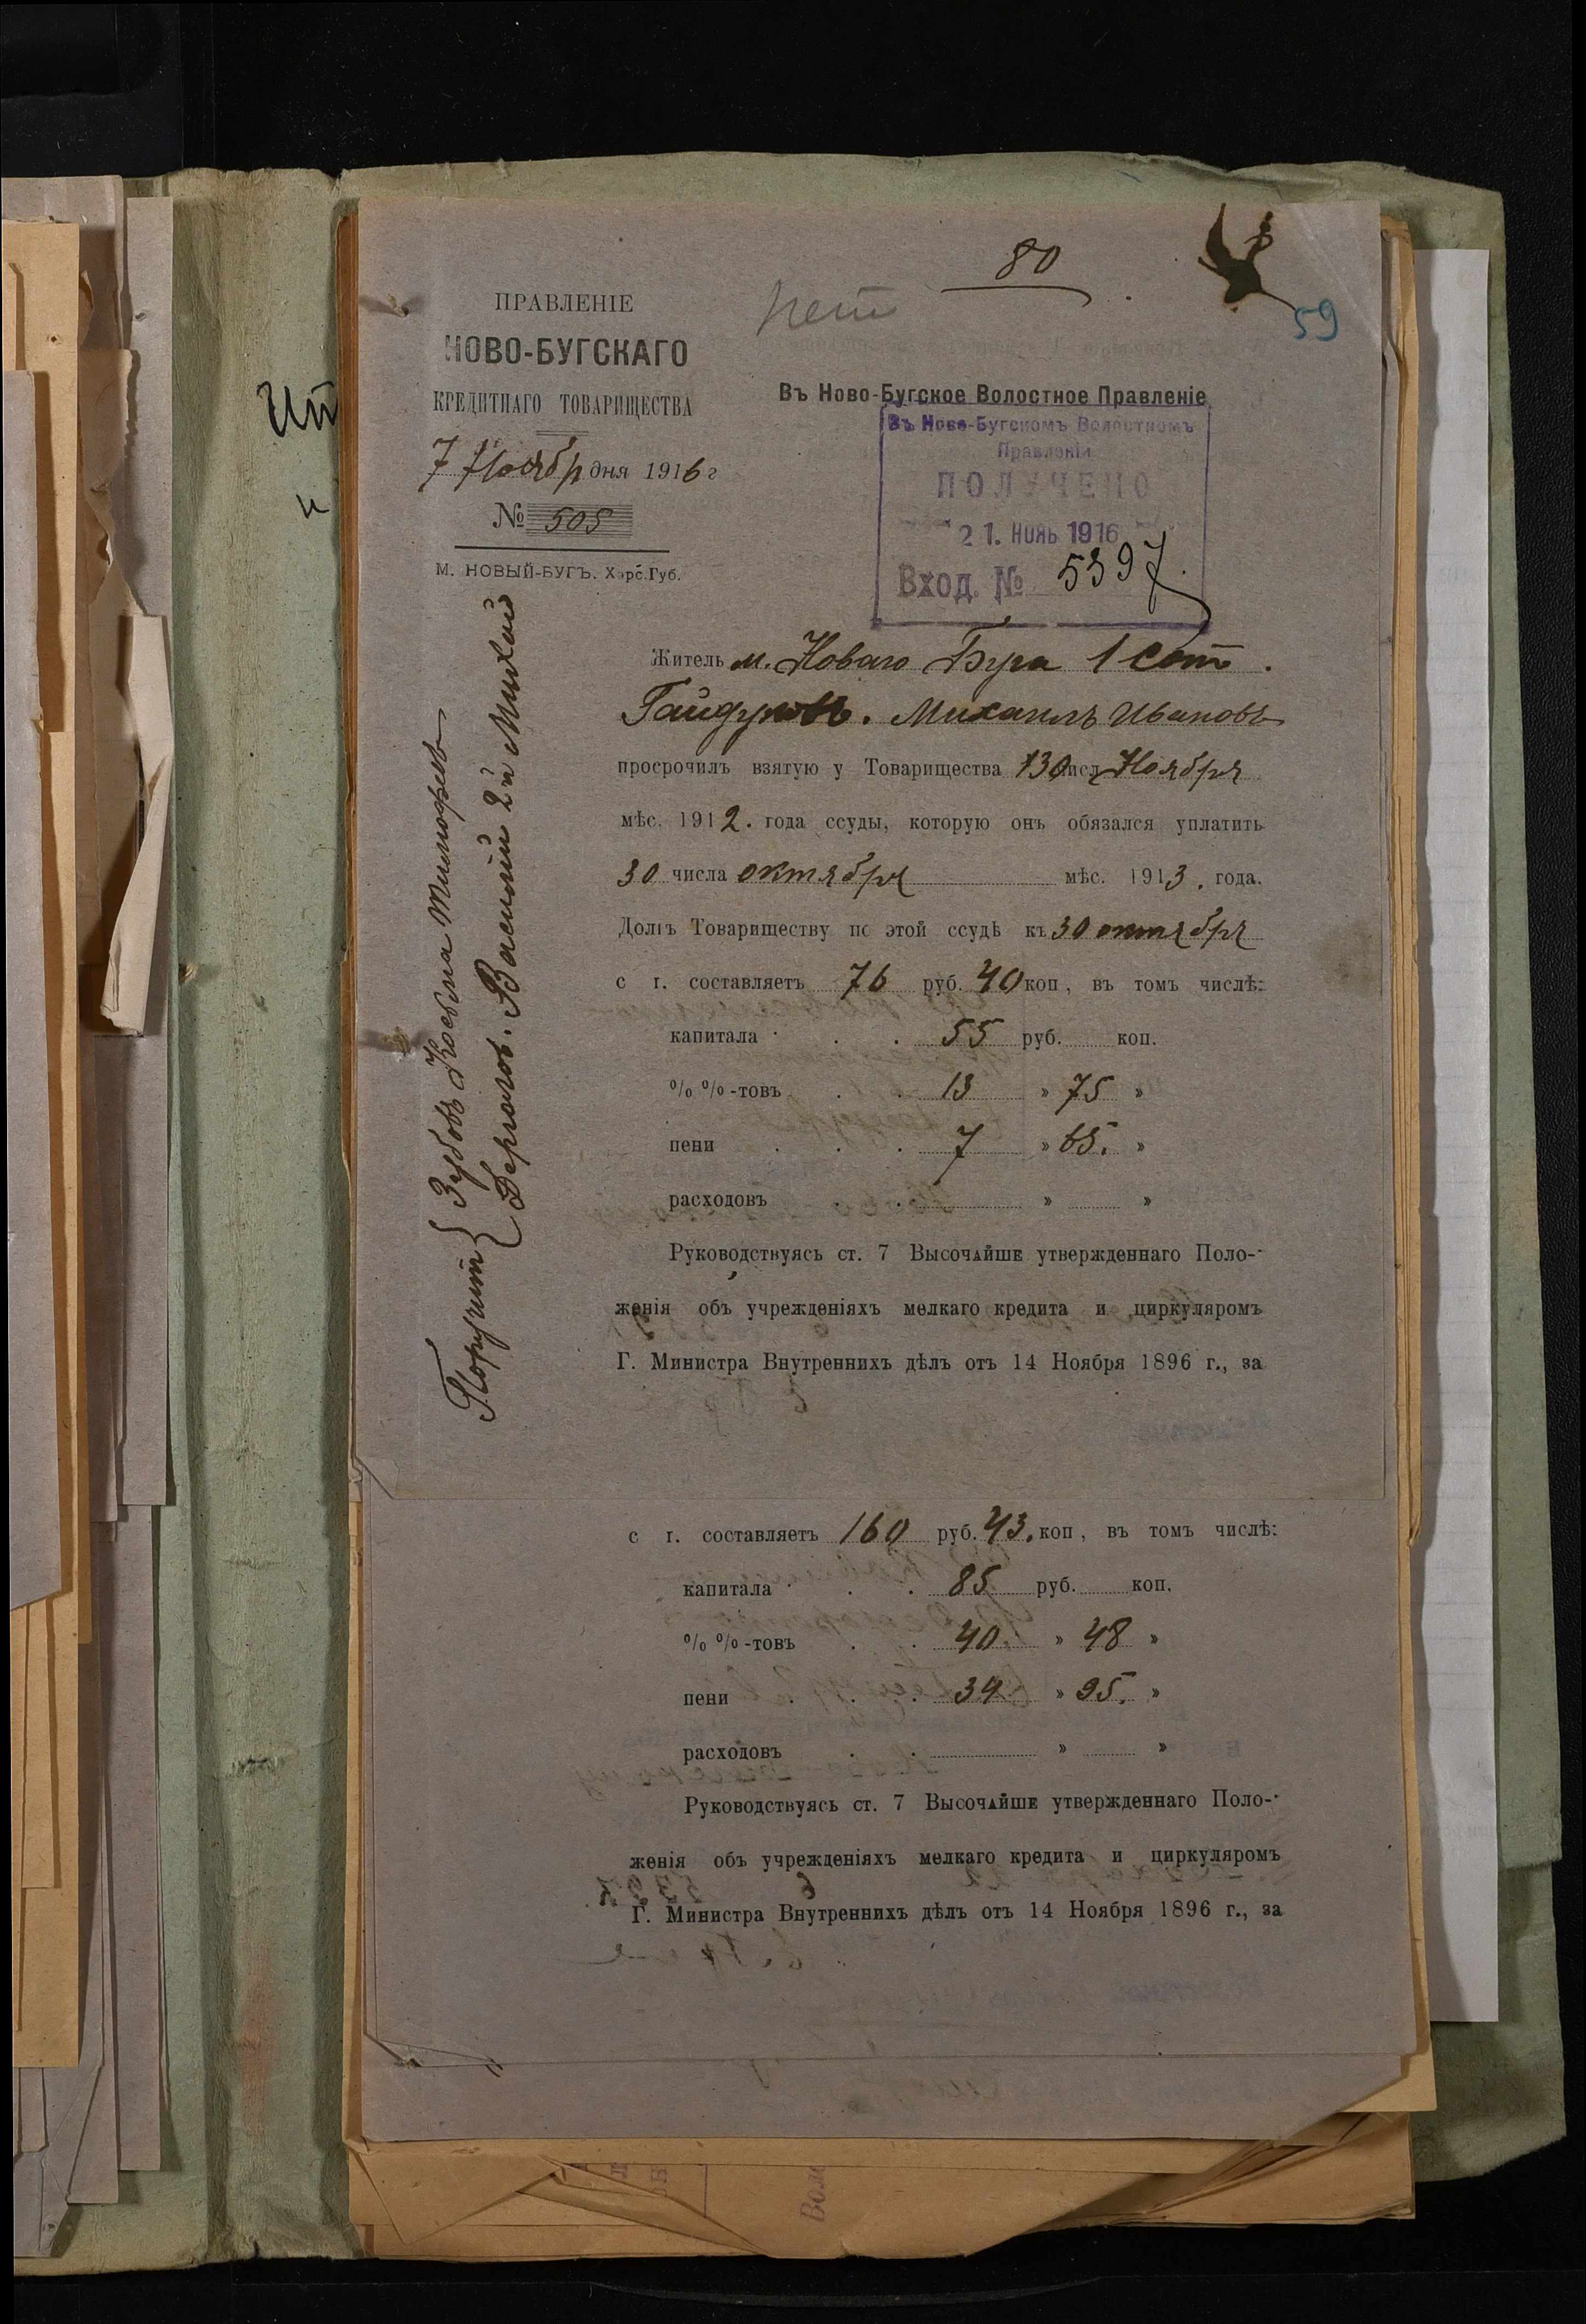 80
нет
59
ПРАВЛЕНІЕ
НОВО-БУГСКАГО
КРЕДИТНАГО ТОВАРИЩЕСТВА
7 Ноябр дня 1916 г
№ 505
М. НОВЫЙ-БУГЪ. Хэрс.Губ.
Въ Ново-Бугское Волостное Правленіе
Въ Ново-Бугскомъ Волостномъ
Правленіи
ПОЛУЧЕНО
21. НОЯЬ 1916
Вход. № 5397.
Житель м. Новаго Буга 1 Сот.
Гайдуковъ. Михаилъ Ивановъ
просрочилъ взятую у Товарищества 130 исл Ноября
мѣс. 1912. года ссуды, которую онъ обязался уплатить
30 числа октября мѣс. 1913. года.
Долгъ Товариществу по этой ссудѣ къ 30 октября
с г. составляетъ 76 руб. 40 коп, въ томъ числѣ:
капитала . . 55 руб. коп.
% %-товъ . . 13 » 75 »
пени . . . 7 » 65. »
расходовъ . . » »
Руководствуясь ст. 7 Высочайше утвержденнаго Поло-
женія объ учрежденіяхъ мелкаго кредита и циркуляромъ
Г. Министра Внутреннихъ дѣлъ отъ 14 Ноября 1896 г., за
Поручит { Зубовъ Косьма Тимофеев
Дерголов. Василий 2й Михай
с г. составляетъ 160 руб. 43. коп, въ томъ числѣ:
капитала . . 85 руб. коп.
% %-товъ . . 40. » 48 »
пени . . . 34 » 95. »
расходовъ . . » »
Руководствуясь ст. 7 Высочайше утвержденнаго Поло-
женія объ учрежденіяхъ мелкаго кредита и циркуляромъ
Г. Министра Внутреннихъ дѣлъ отъ 14 Ноября 1896 г., за